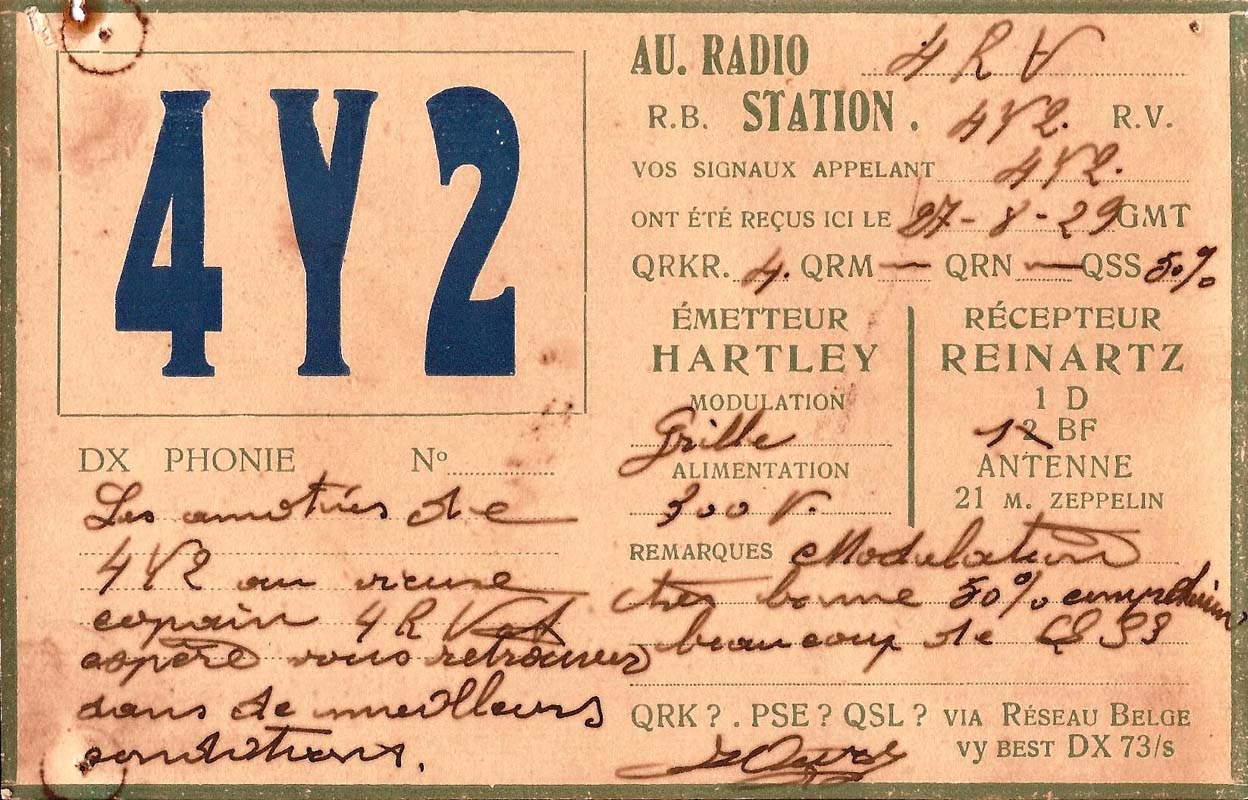 4Y2
DX PHONIE Nº
Les amitiés de
4Y2 au vieux
copain 4RV et
espère vous retrouver
dans de meilleurs
conditions.
AU. RADIO 4RV
R.B. STATION. 4Y2. R.V.
VOS SIGNAUX APPELANT 4Y2.
ONT ÉTÉ REÇUS ICI LE 27-8-29 GMT
QRKR. 4. QRM — QRN — QSS 50%
ÉMETTEUR
HARTLEY
MODULATION
Grille
ALIMENTATION
300 V.
RÉCEPTEUR
REINARTZ
1 D
BF
ANTENNE
21 M. ZEPPELIN
REMARQUES Modulation
très bonne 50%
beaucoup de QSS
QRK?. PSE? QSL? VIA RÉSEAU BELGE
VY BEST DX 73/S